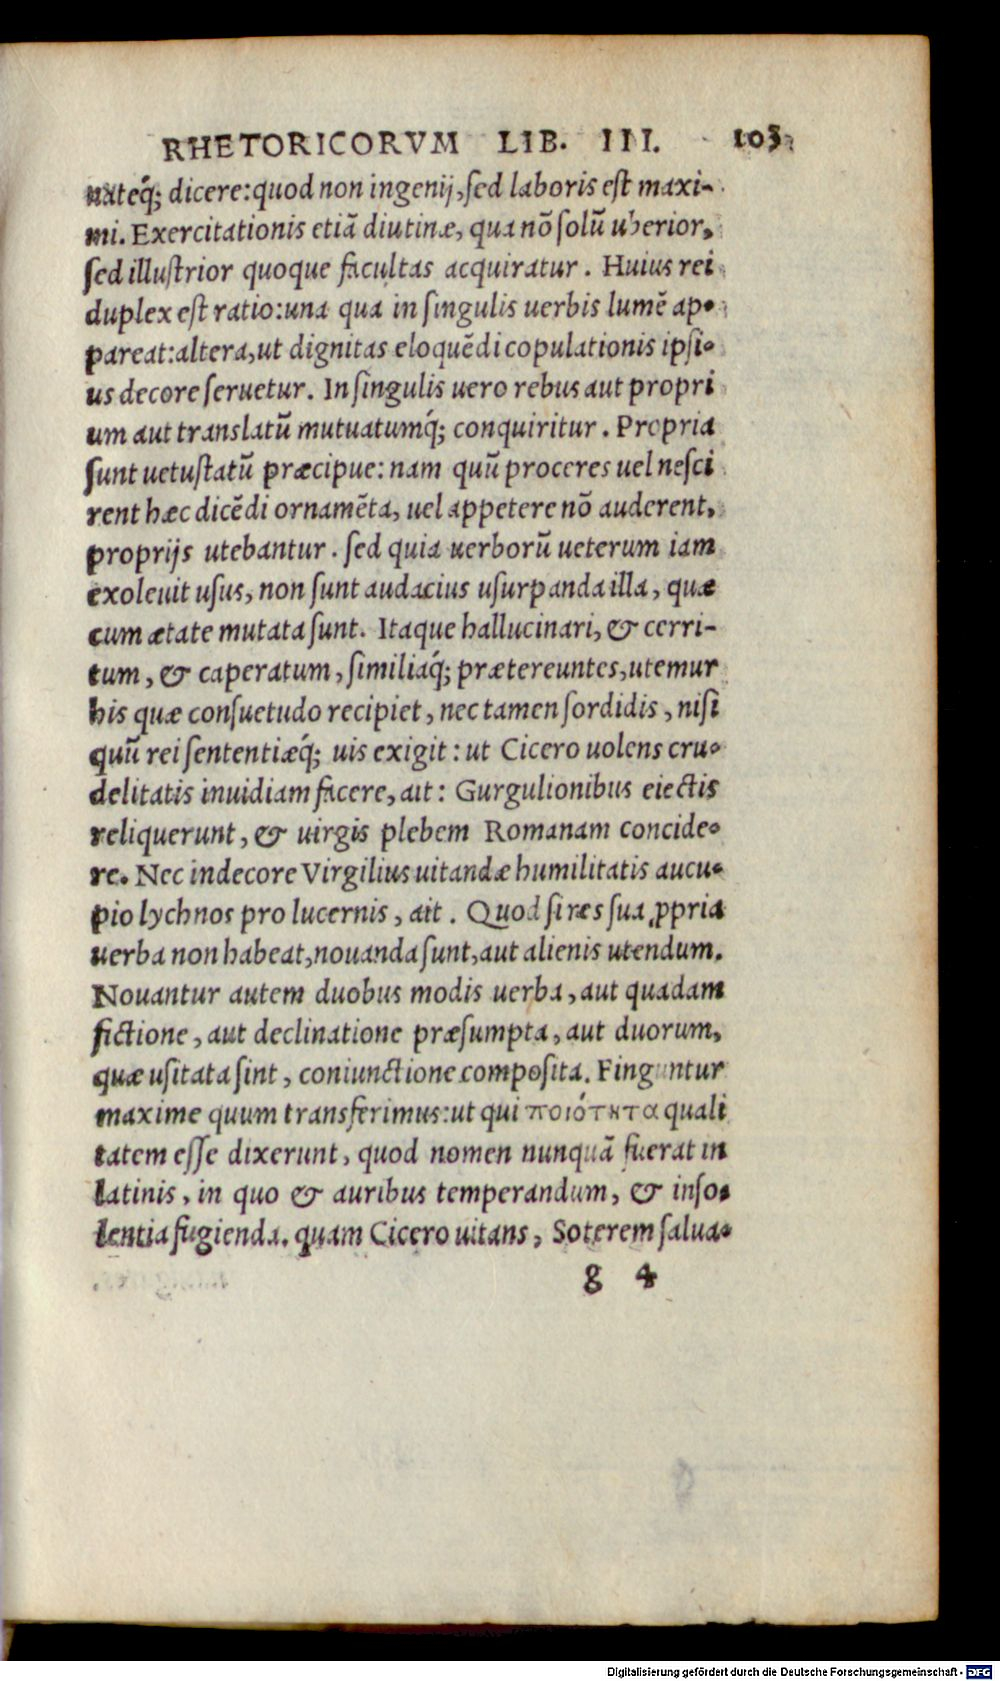 RHETORICORVM LIB. III. 103
nateq́; dicere: quod non ingenij, sed laboris est maxi-
mi. Exercitationis etiã diutinæ, qua nõ solũ uberior,
sed illustrior quoque facultas acquiratur. Huius rei
duplex est ratio: una qua in singulis uerbis lumẽ ap-
pareat: altera, ut dignitas eloquẽdi copulationis ipsi-
us decore seruetur. In singulis uero rebus aut propri
um aut translatũ mutuatumq́; conquiritur. Propria
sunt uetustatũ præcipue: nam quũ proceres uel nesci
rent hæc dicẽdi ornamẽta, uel appetere nõ auderent,
proprijs utebantur. sed quia uerborũ ueterum iam
exoleuit usus, non sunt audacius usurpanda illa, quæ
cum ætate mutata sunt. Itaque hallucinari, & cerri-
tum, & caperatum, similiaq́; prætereuntes, utemur
his quæ consuetudo recipiet, nec tamen sordidis, nisi
quũ rei sententiæq́; uis exigit: ut Cicero uolens cru-
delitatis inuidiam facere, ait: Gurgulionibus eiectis
reliquerunt, & uirgis plebem Romanam concide-
re. Nec indecore Virgilius uitandæ humilitatis aucu-
pio lychnos pro lucernis, ait. Quod si res sua ꝓpria
uerba non habeat, nouanda sunt, aut alienis utendum.
Nouantur autem duobus modis uerba, aut quadam
fictione, aut declinatione præsumpta, aut duorum,
quæ usitata sint, coniunctione composita. Finguntur
maxime quum transferimus: ut qui ποιότητα quali
tatem esse dixerunt, quod nomen nunquã fuerat in
latinis, in quo & auribus temperandum, & inso-
lentia fugienda. quam Cicero uitans, Soterem salua-
g 4
Digitalisierung gefördert durch die Deutsche Forschungsgemeinschaft - DFG